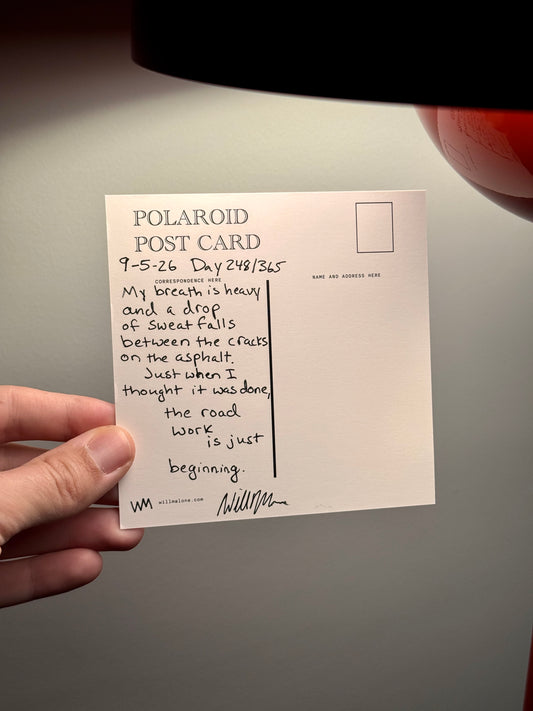 POLAROID
POST CARD
9-5-26 Day 248/365
CORRESPONDENCE HERE
NAME AND ADDRESS HERE
My breath is heavy
and a drop
of sweat falls
between the cracks
on the asphalt.
Just when I
thought it was done,
the road
work
is just
beginning.
WM willmalone.com